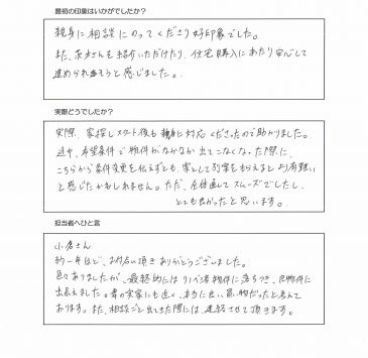 最初の印象はいかがでしたか?
親身に相談にのってくださり好印象でした。
また、 を紹介いただけたり、住宅購入にあたり安心して
進められそうと感じました。
実際どうでしたか?
実際、家探しスタート後も親身に対応くださったので助かりました。
途中、希望条件で物件がなかなか出てこなくなった際に、
こちらから条件変更を伝えずとも、家として別案をもらえるとより有難い
と感じたかもしれません。ただ、全体通してスムーズでしたし、
とても良かったと思います。
担当者へひと言
小倉さん
約一年ほど、お付合い頂きありがとうございました。
色々ありましたが、最終的には 物件に落ちつき、良物件に
出会えました。 の実家にも近く、本当に良い買い物だったと考えて
おります。また、相談ごと出てきた際には連絡させて頂きます。